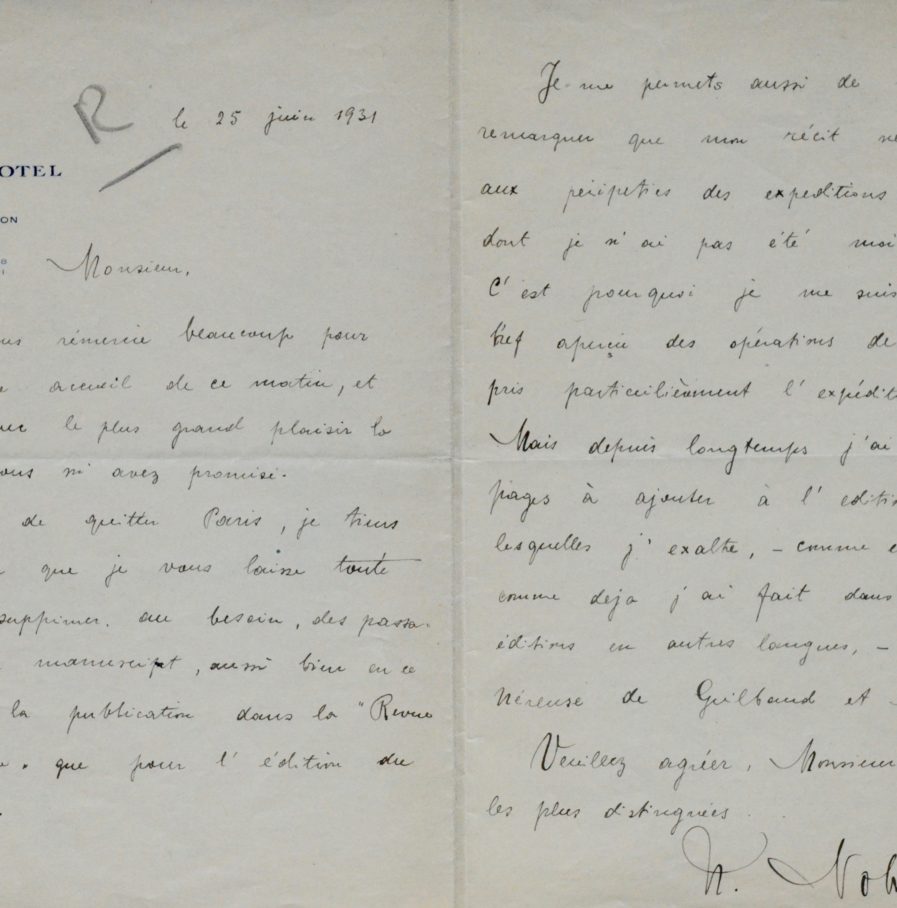 R
le 25 juin 1931
OTEL
ON
8
1
Monsieur,
us remercie beaucoup pour
accueil de ce matin, et
ec le plus grand plaisir la
ous m'avez promise.
de quitter Paris, je tiens
que je vous laisse toute
supprimer, au besoin, des passa-
manuscript, aussi bien en ce
la publication dans la "Revue
. que pour l'édition du
Je me permets aussi de
remarquer que mon récit ne
aux péripéties des expeditions
dont je n'ai pas été moi
C'est pourquoi je me suis
bref aperçu des opérations de
pris particulièrement l'expédit
Mais depuis longtemps j'ai
pages à ajouter à l'editio
lesquelles j'exalte, - comme
comme deja j'ai fait dans
éditions en autres langues, -
de Guilbaud et
Veuillez agréer, Monsieur
les plus distinguées.
Nob